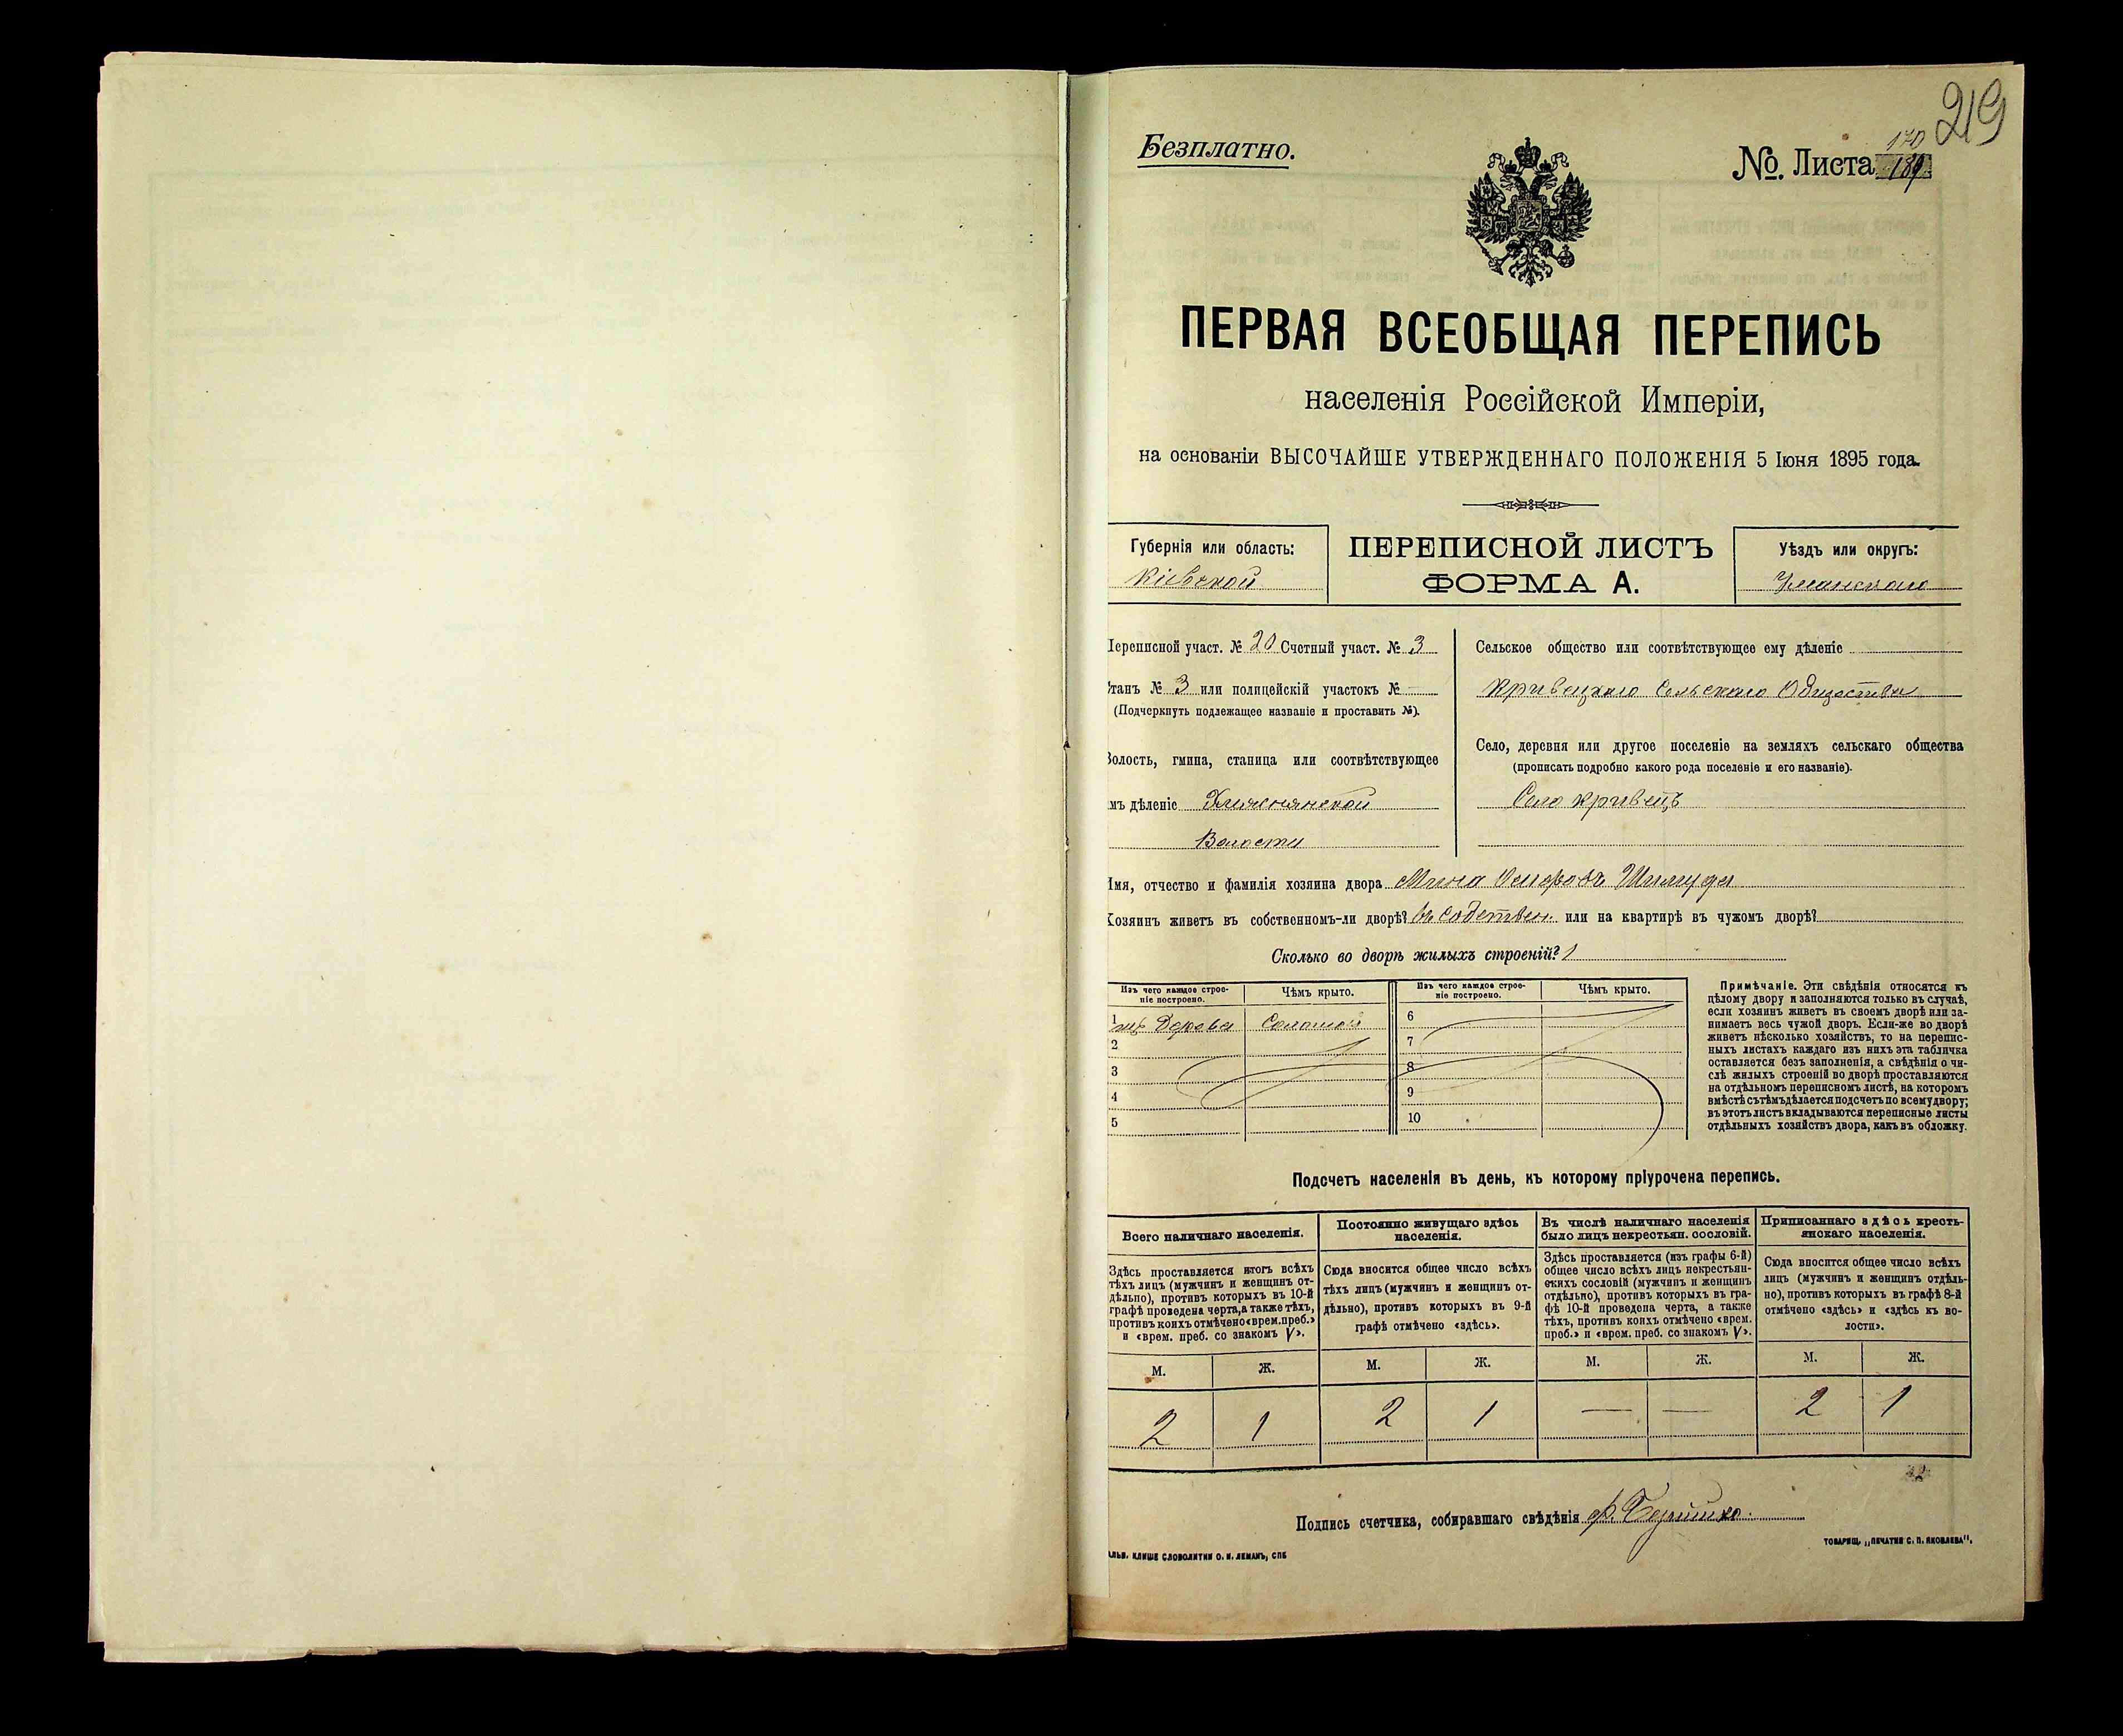 219
Безплатно.
№. Листа 170
189
ПЕРВАЯ ВСЕОБЩАЯ ПЕРЕПИСЬ
населенія Россійской Имперіи,
на основаніи ВЫСОЧАЙШЕ УТВЕРЖДЕННАГО ПОЛОЖЕНІЯ 5 Іюня 1895 года.
Губернія или область:
Кіевской
ПЕРЕПИСНОЙ ЛИСТЪ
ФОРМА А.
Уѣздъ или округъ:
Уманскаго
Переписной участ. № 20 Счетный участ. № 3
Станъ № 3 или полицейскій участокъ № —
(Подчеркнуть подлежащее названіе и проставить №).
Волость, гмина, станица или соотвѣтствующее
имъ дѣленіе
Волости
Сельское общество или соотвѣтствующее ему дѣленіе
Кривецкаго Сельскаго Общества
Село, деревня или другое поселеніе на земляхъ сельскаго общества
(прописать подробно какого рода поселеніе и его названіе).
Село Кривецъ
Имя, отчество и фамилія хозяина двора Мина
Хозяинъ живетъ въ собственномъ-ли дворѣ? въ собствен. или на квартирѣ въ чужомъ дворѣ?
Сколько во дворѣ жилыхъ строеній? 1
Изъ чего каждое строеніе построено.
Чѣмъ крыто.
Изъ чего каждое строеніе построено.
Чѣмъ крыто.
1 изъ Дерева Соломой
2
3
4
5
6
7
8
9
10
Примѣчаніе. Эти свѣдѣнія относятся къ
цѣлому двору и заполняются только въ случаѣ,
если хозяинъ живетъ въ своемъ дворѣ или за-
нимаетъ весь чужой дворъ. Если-же во дворѣ
живетъ нѣсколько хозяйствъ, то на перепис-
ныхъ листахъ каждаго изъ нихъ эта табличка
оставляется безъ заполненія, а свѣдѣнія о чи-
слѣ жилыхъ строеній во дворѣ проставляются
на отдѣльномъ переписномъ листѣ, на которомъ
вмѣстѣ съ тѣмъ дѣлается подсчетъ по всему двору;
въ этотъ листъ вкладываются переписные листы
отдѣльныхъ хозяйствъ двора, какъ въ обложку.
Подсчетъ населенія въ день, къ которому пріурочена перепись.
Всего наличнаго населенія.
Здѣсь проставляется итогъ всѣхъ
тѣхъ лицъ (мужчинъ и женщинъ от-
дѣльно), противъ которыхъ въ 10-й
графѣ проведена черта, а также тѣхъ,
противъ коихъ отмѣчено «врем. преб.»
и «врем. преб. со знакомъ V».
Постоянно живущаго здѣсь
населенія.
Сюда вносится общее число всѣхъ
тѣхъ лицъ (мужчинъ и женщинъ от-
дѣльно), противъ которыхъ въ 9-й
графѣ отмѣчено «здѣсь».
Въ числѣ наличнаго населенія
было лицъ некрестьян. сословій.
Здѣсь проставляется (изъ графы 6-й)
общее число всѣхъ лицъ некрестьян-
скихъ сословій (мужчинъ и женщинъ
отдѣльно), противъ которыхъ въ гра-
фѣ 10-й проведена черта, а также
тѣхъ, противъ коихъ отмѣчено «врем.
преб.» и «врем. преб. со знакомъ V».
Приписаннаго здѣсь кресть-
янскаго населенія.
Сюда вносится общее число всѣхъ
лицъ (мужчинъ и женщинъ отдѣль-
но), противъ которыхъ въ графѣ 8-й
отмѣчено «здѣсь» и «здѣсь къ во-
лости».
М. Ж. М. Ж. М. Ж. М. Ж.
2 1 2 1 — — 2 1
Подпись счетчика, собиравшаго свѣдѣнія
КЛИШЕ СЛОВОЛИТНИ О. И. ЛЕМАНЪ, СПБ
ТОВАРИЩ. „ПЕЧАТНЯ С. П. ЯКОВЛЕВА".